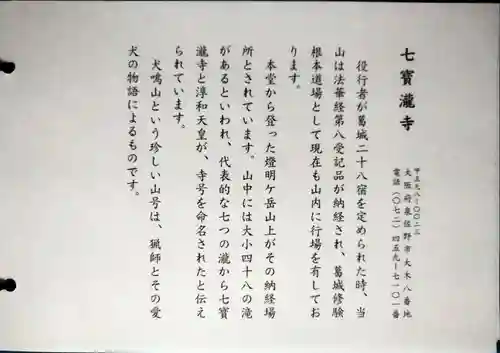 七寶瀧寺
〒五九八－〇〇二三
大阪府泉佐野市大木八番地
電話（〇七二）四五九－七一〇一番
役行者が葛城二十八宿を定められた時、当
山は法華経第八受記品が納経され、葛城修験
根本道場として現在も山内に行場を有してお
ります。
本堂から登った燈明ケ岳山上がその納経場
所とされています。山中には大小四十八の滝
があるといわれ、代表的な七つの瀧から七寶
瀧寺と淳和天皇が、寺号を命名されたと伝え
られています。
犬鳴山という珍しい山号は、猟師とその愛
犬の物語によるものです。